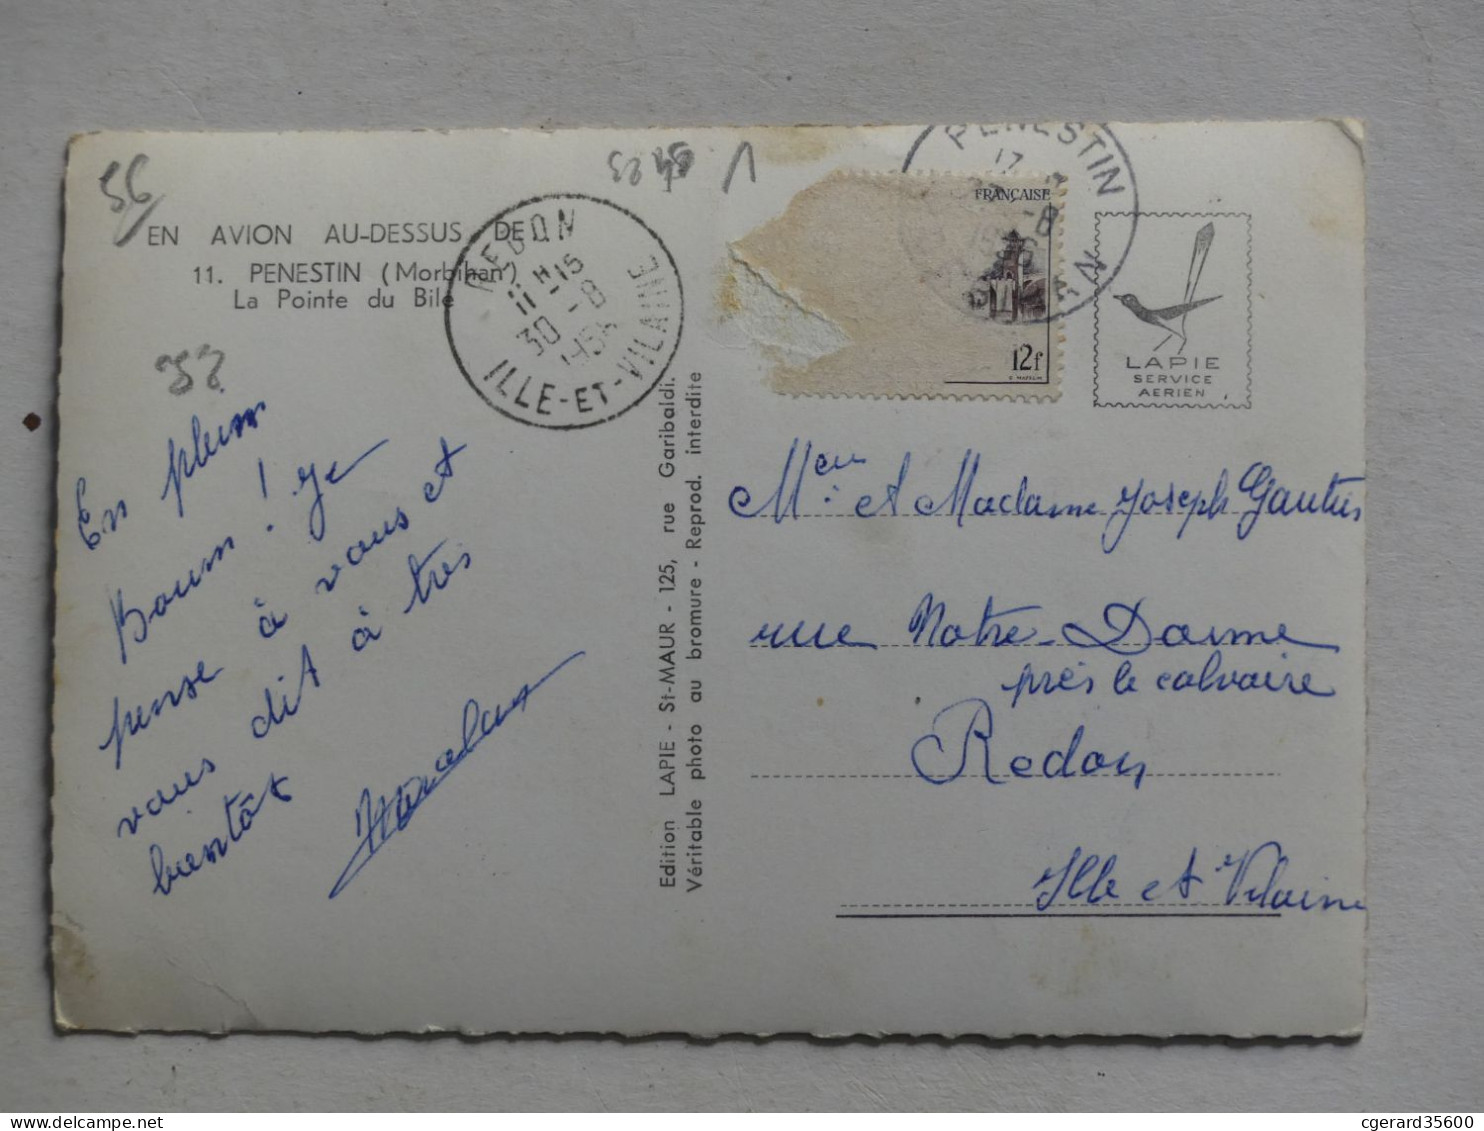 56
EN AVION AU-DESSUS DE
11. PENESTIN (Morbihan)
La Pointe du Bile
REDON
11 H-15
30 -8
ILLE-ET-VILAINE
En plein
Boum! Je
pense à vous et
vous dit à très
bientôt
Edition LAPIE - St-MAUR - 125, rue Garibaldi.
Véritable photo au bromure - Reprod. interdite
PENESTIN
17
FRANÇAISE
12f
LAPIE
SERVICE
AERIEN
et Madame Joseph
rue Notre-Dame
près le calvaire
Redon
Ille et Vilaine
cgerard35600